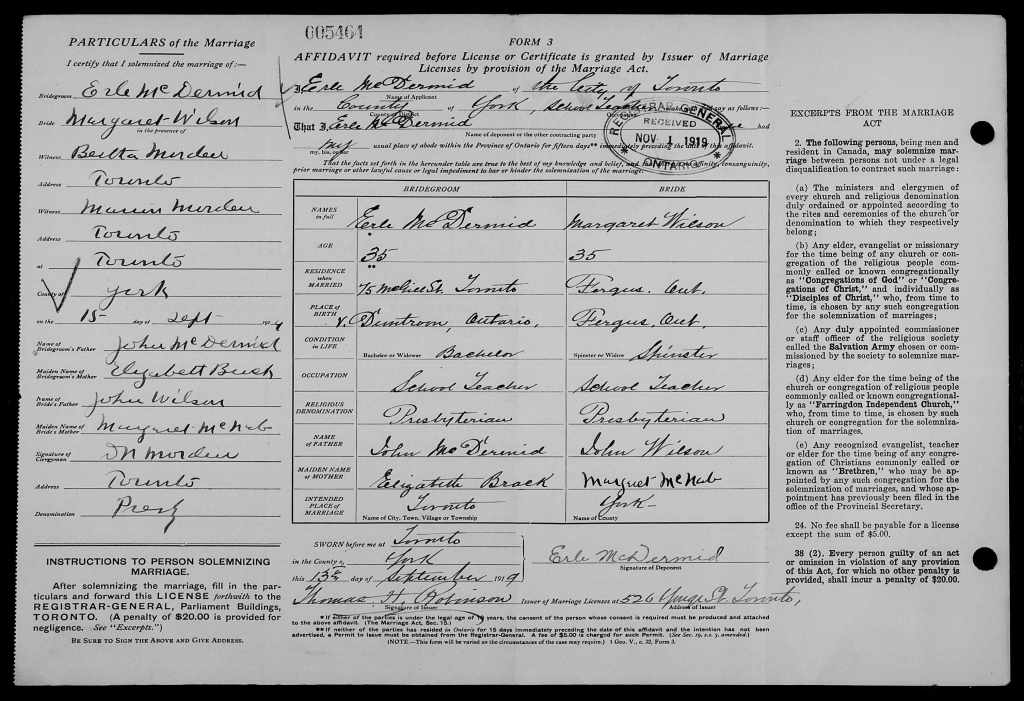 005464
PARTICULARS of the Marriage
I certify that I solemnized the marriage of:—
Bridegroom Erle McDermid
Bride Margaret Wilson
in the presence of
Witness Bertha Morden
Address Toronto
Witness Morden
Address Toronto
at Toronto
County of York
on the 15 day of Sept 19
Name of Bridegroom's Father John McDermid
Maiden Name of Bridegroom's Mother Elizabeth
Name of Bride's Father John Wilson
Maiden Name of Bride's Mother Margaret McNab
Signature of Clergyman Morden
Address Toronto
Denomination Presby
INSTRUCTIONS TO PERSON SOLEMNIZING
MARRIAGE.
After solemnizing the marriage, fill in the par-
ticulars and forward this LICENSE forthwith to the
REGISTRAR-GENERAL, Parliament Buildings,
TORONTO. (A penalty of $20.00 is provided for
negligence. See "Excerpts.")
BE SURE TO SIGN THE ABOVE AND GIVE ADDRESS.
FORM 3
AFFIDAVIT required before License or Certificate is granted by Issuer of Marriage
Licenses by provision of the Marriage Act.
I, Erle McDermid of the City of Toronto
Name of Applicant
in the County of York, School Teacher say as follows:—
That I, Erle McDermid had
Name of deponent or the other contracting party
my usual place of abode within the Province of Ontario for fifteen days** immediately preceding the of this affidavit.
my, his, or her
That the facts set forth in the hereunder table are true to the best of my knowledge and belief, and affinity, consanguinity,
prior marriage or other lawful cause or legal impediment to bar or hinder the solemnization of the marriage.
REGISTRAR GENERAL
RECEIVED
NOV 1 1919
ONTARIO
BRIDEGROOM BRIDE
NAMES in full Erle McDermid Margaret Wilson
AGE 35 35
RESIDENCE when MARRIED 75 McGill St. Toronto Fergus. Ont.
PLACE of BIRTH Duntroon, Ontario, Fergus. Ont.
CONDITION in LIFE Bachelor or Widower Bachelor Spinster or Widow Spinster
OCCUPATION School Teacher School Teacher
RELIGIOUS DENOMINATION Presbyterian Presbyterian
NAME of FATHER John McDermid John Wilson
MAIDEN NAME of MOTHER Elizabeth Brack Margret McNab
INTENDED PLACE of MARRIAGE Toronto York
Name of City, Town, Village or Township Name of County
SWORN before me at Toronto
in the County of York
this 13th day of September 1919
Erle McDermid
Signature of Deponent
Thomas H. Robinson Issuer of Marriage Licenses at 526 Yonge St. Toronto,
Signature of Issuer Address of Issuer
*If either of the parties is under the legal age of years, the consent of the person whose consent is required must be produced and attached
to the above affidavit. (The Marriage Act, Sec. 15.)
**If neither of the parties has resided in Ontario for 15 days immediately preceding the date of this affidavit and the intention has not been
advertised, a Permit to Issue must be obtained from the Registrar-General. A fee of $5.00 is charged for such Permit. (See Sec. 19, s.s. 7, amended.)
(NOTE.—This form will be varied as the circumstances of the case may require.) 1 Geo. V., c. 32, Form 3.
EXCERPTS FROM THE MARRIAGE
ACT
2. The following persons, being men and
resident in Canada, may solemnize mar-
riage between persons not under a legal
disqualification to contract such marriage:
(a) The ministers and clergymen of
every church and religious denomination
duly ordained or appointed according to
the rites and ceremonies of the church or
denomination to which they respectively
belong;
(b) Any elder, evangelist or missionary
for the time being of any church or con-
gregation of the religious people com-
monly called or known congregationally
as "Congregations of God" or "Congre-
gations of Christ," and individually as
"Disciples of Christ," who, from time to
time, is chosen by any such congregation
for the solemnization of marriages;
(c) Any duly appointed commissioner
or staff officer of the religious society
called the Salvation Army chosen or com-
missioned by the society to solemnize mar-
riages;
(d) Any elder for the time being of the
church or congregation of religious people
commonly called or known congregational-
ly as "Farringdon Independent Church,"
who, from time to time, is chosen by such
church or congregation for the solemniza-
tion of marriages.
(e) Any recognized evangelist, teacher
or elder for the time being of any congre-
gation of Christians commonly called or
known as "Brethren," who may be ap-
pointed by any such congregation for the
solemnization of marriages, and whose ap-
pointment has previously been filed in the
office of the Provincial Secretary.
24. No fee shall be payable for a license
except the sum of $5.00.
38 (2). Every person guilty of an act
or omission in violation of any provision
of this Act, for which no other penalty is
provided, shall incur a penalty of $20.00.